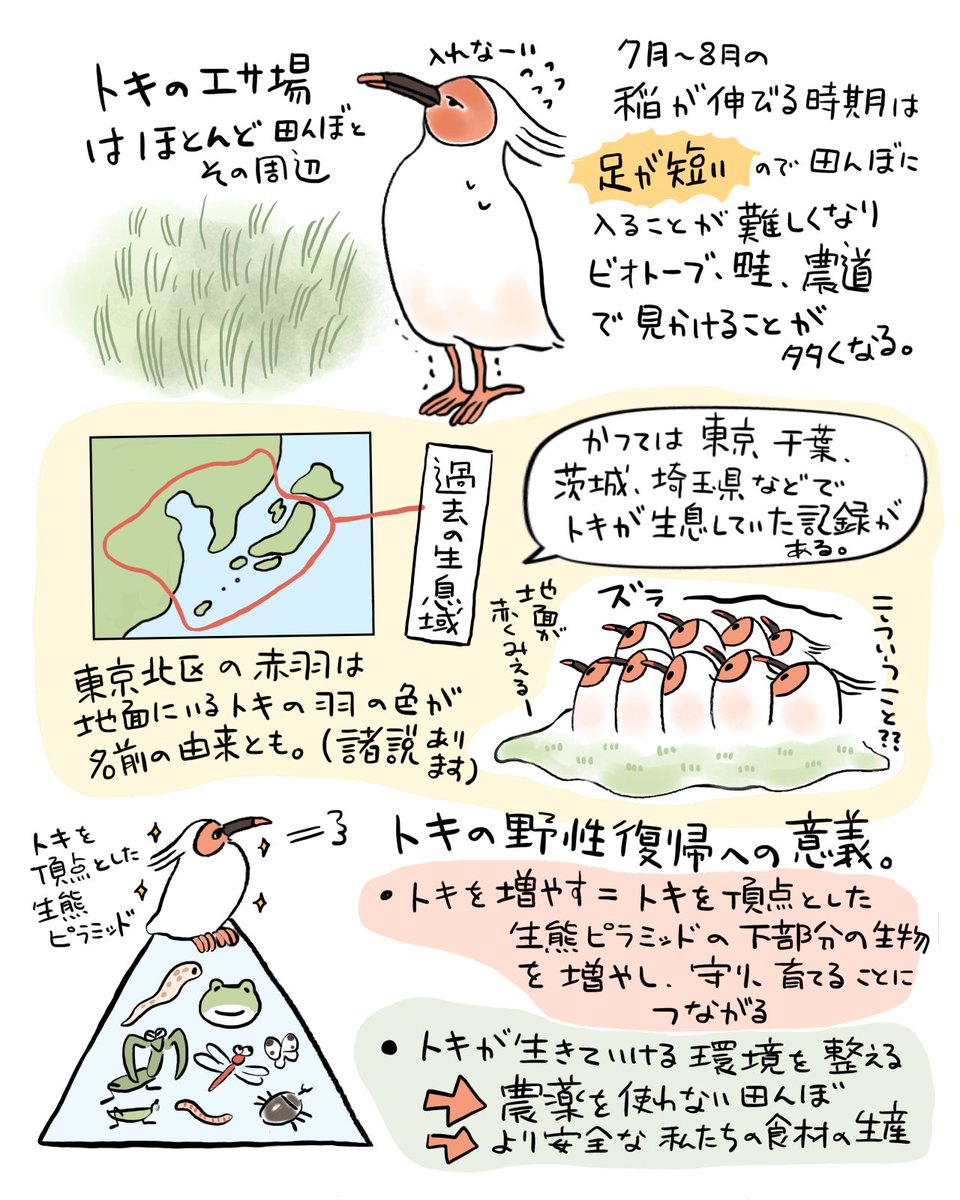 トキのエサ場
はほとんど田んぼと
その周辺
入れなーい
7月〜8月の
稲が伸びる時期は
足が短い
ので田んぼに
入ることが難しくなり
ビオトーブ、畦、農道
で見かけることが
多くなる。
過去の生息域
かつては東京、千葉、
茨城、埼玉県などで
トキが生息していた記録が
ある。
東京北区の赤羽は
地面にいるトキの羽の色が
名前の由来とも。(諸説あり
ます)
地面が
赤くみえるー
ズラ
こういうこと??
トキを
頂点とした
生態
ピラミッド
トキの野性復帰への意義。
• トキを増やす=トキを頂点とした
生態ピラミッドの下部分の生物
を増やし、守り、育てることに
つながる
• トキが生きていける環境を整える
農薬を使わない田んぼ
より安全な私たちの食材の生産